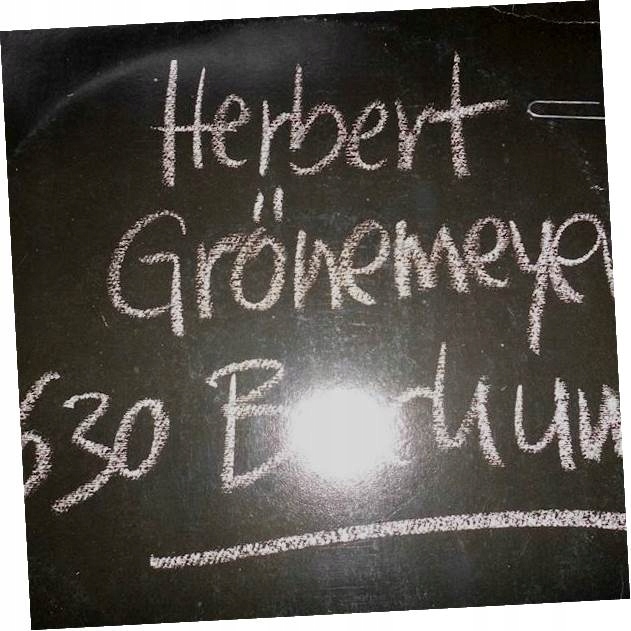 Herbert
Grönemeyer
630 Bochum